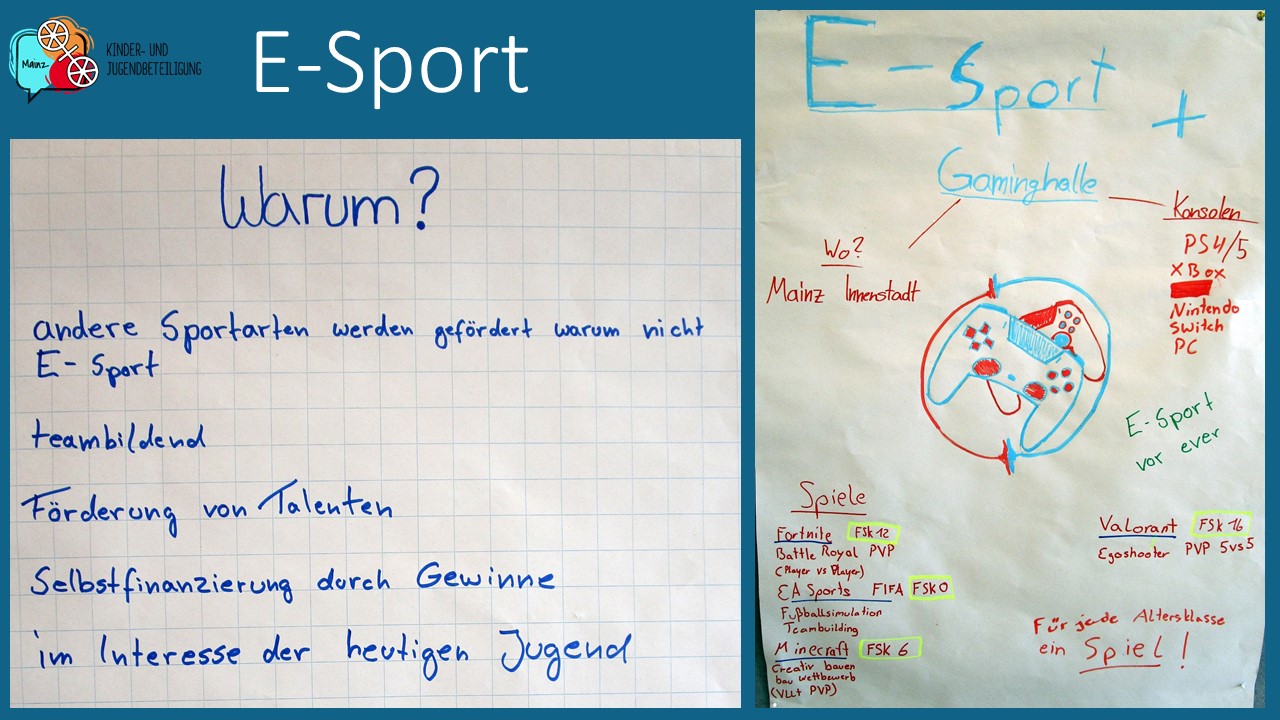 Mainz
KINDER- UND
JUGENDBETEILIGUNG
E-Sport
Warum?
andere Sportarten werden gefördert warum nicht
E-Sport
teambildend
Förderung von Talenten
Selbstfinanzierung durch Gewinne
im Interesse der heutigen Jugend
E-Sport
+
Gaminghalle
Wo?
Mainz Innenstadt
Konsolen
PS4/5
XBox
Nintendo
Switch
PC
E-Sport
vor ever
Spiele
Fortnite FSK 12
Battle Royal PVP
(Player vs Player)
EA Sports FIFA FSK 0
Fußballsimulation
Teambuilding
Minecraft FSK 6
Creativ bauen
bau wettbewerb
(Vllt PVP)
Valorant FSK 16
Egoshooter PVP 5vs5
Für jede Altersklasse
ein Spiel!